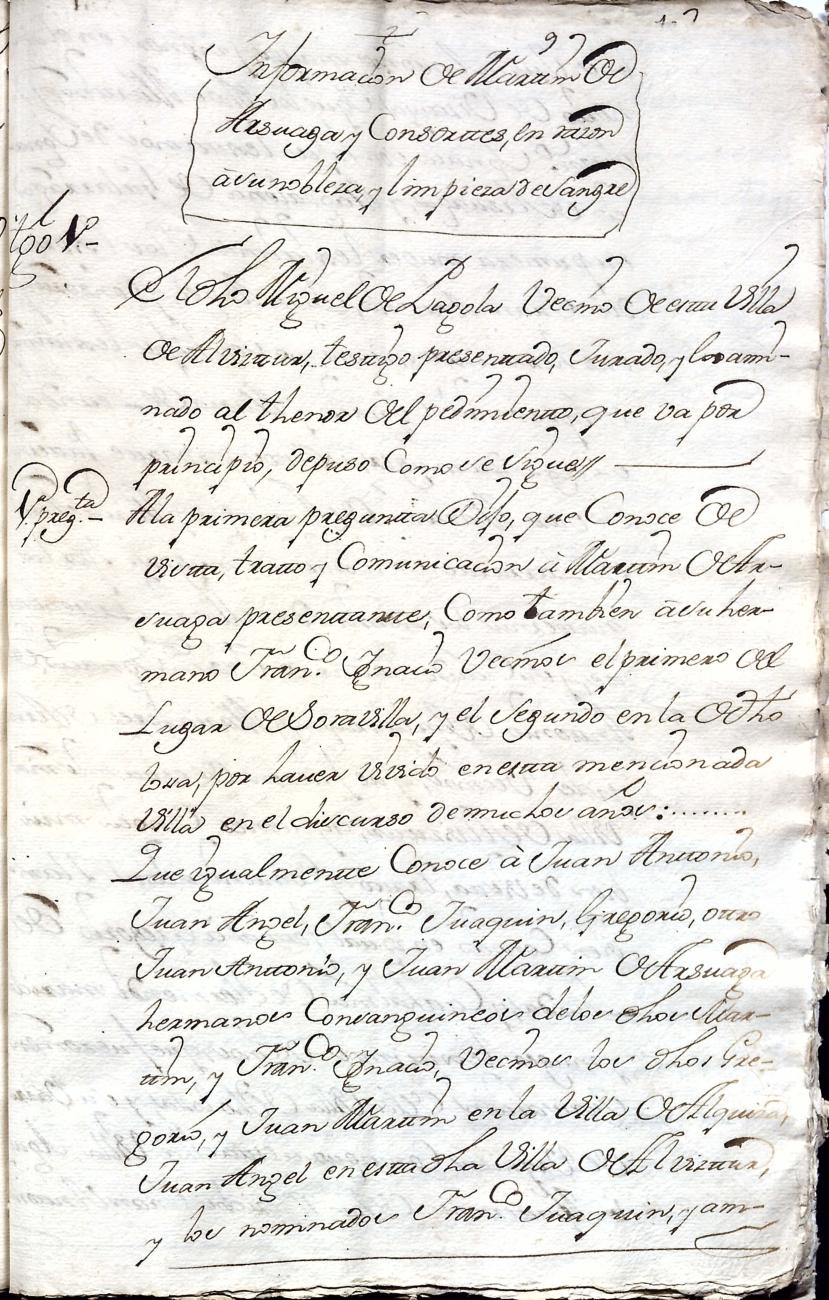 Informacion de Martin de
Arsuaga y Consortes, en razon
à su nobleza, y limpieza de sangre
tgo 1º
El dho Miguel de Zagola Vecino de esta Villa
de Alviztur, testigo presentado, Jurado, y exami-
nado al thenor del pedimiento, que va por
principio, depuso Como se sigue//
1ª pregta
A la primera pregunta Dijo, que Conoce de
vista, trato y Comunicacion à Martin de Ar-
suaga presentante, Como tambien à su her-
mano Franco Ignacio Vecinos el primero del
Lugar de Soravilla, y el segundo en la de dho
loza, por haver vivido en esta mencionada
Villa en el discurso de muchos años:........
Que igualmente Conoce à Juan Anttonio,
Juan Angel, Franco Juaquin, Gregorio, otro
Juan Anttonio, y Juan Martin de Arsuaga
hermanos Consanguineos de los dhos Mar-
tin, y Franco Ignacio, Vecinos los dhos Gre-
gorio, y Juan Martin en la Villa de Alquiza,
Juan Angel en esta dha Villa de Alviztur,
y los nominados Franco Juaquin, y am-